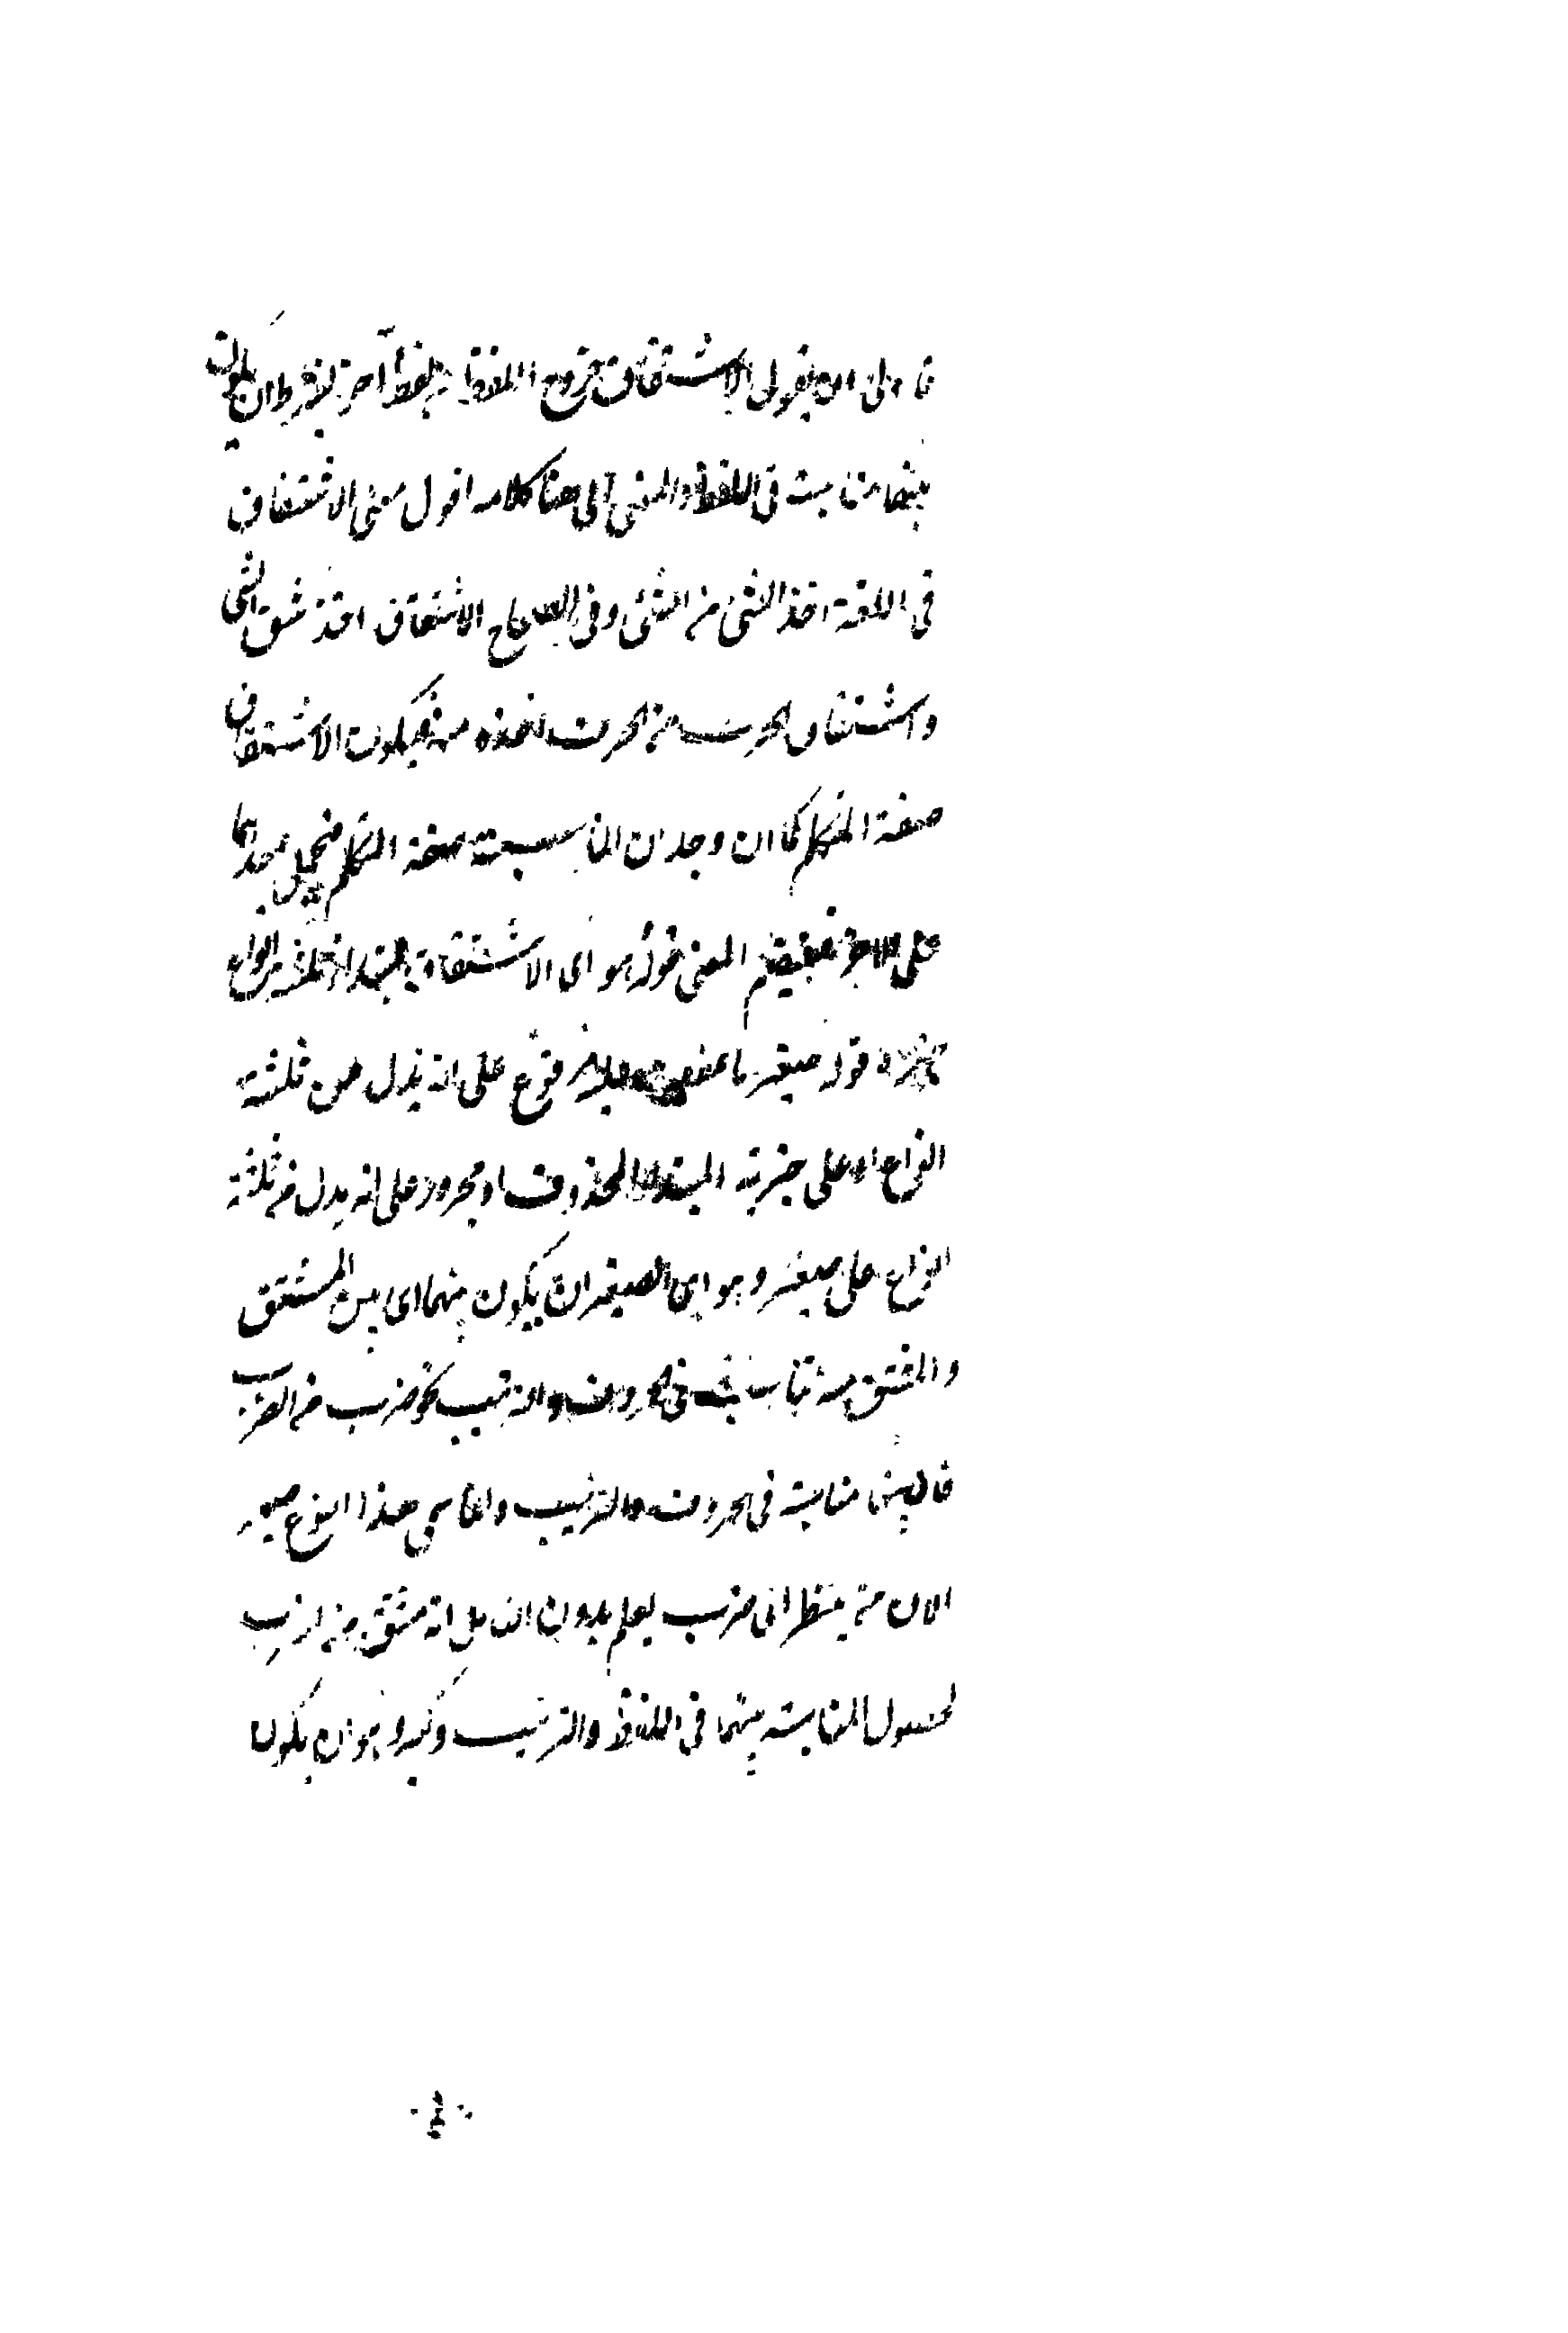 فاولى ان يقول الاشتقاق خروج اللفظ من لفظ آخر بشرط ان يكون
بينهما مناسبة في اللفظ والمعنى الى هنا كلامه اقول معنى الاشتقاق
في اللغة اخذ الشئ من الشئ وفي الصحاح الاشتقاق اخذ شق الشئ
واشتقاق الحرف من الحرف اخذه منه فيكون الاشتقاق
صفة المتكلم كما ان وجدان المناسبة صفة المتكلم فيحمل احدهما
على الاخر فيستقيم المعنى قوله هو اى الاشتقاق مبتدأ ثلثة انواع
خبره قوله صغير مرفوع على انه بدل من ثلثة
انواع او على خبرية المبتدا المحذوف او مجرور على انه بدل من ثلثة
انواع على صغير وهو اى الصغير ان يكون بينهما اى بين المشتق
والمشتق منه تناسب في الحروف والترتيب نحو ضرب من الضرب
فان بينهما مناسبة في الحروف والترتيب وانما سمى هذا النوع صغير
لان من ينظر الى ضرب يعلم بدون التامل انه مشتق من الضرب
لحصول المناسبة بينهما في اللفظ والترتيب وكبير وهو ان يكون